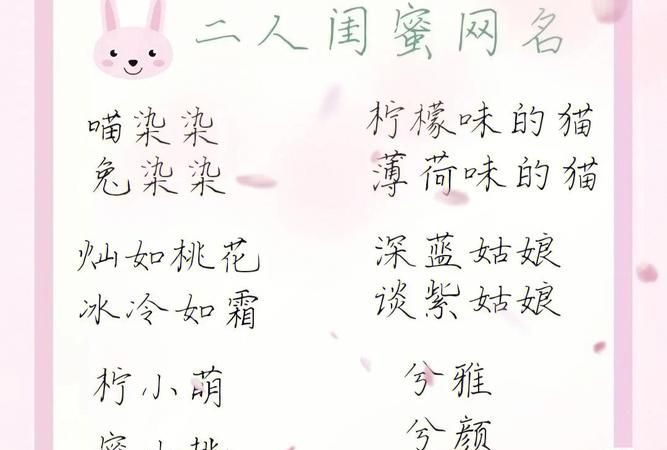 二人闺蜜网名
喵染染
兔染染
柠檬味的猫
薄荷味的猫
灿如桃花
冰冷如霜
深蓝姑娘
谈紫姑娘
柠小萌
兮雅
兮颜